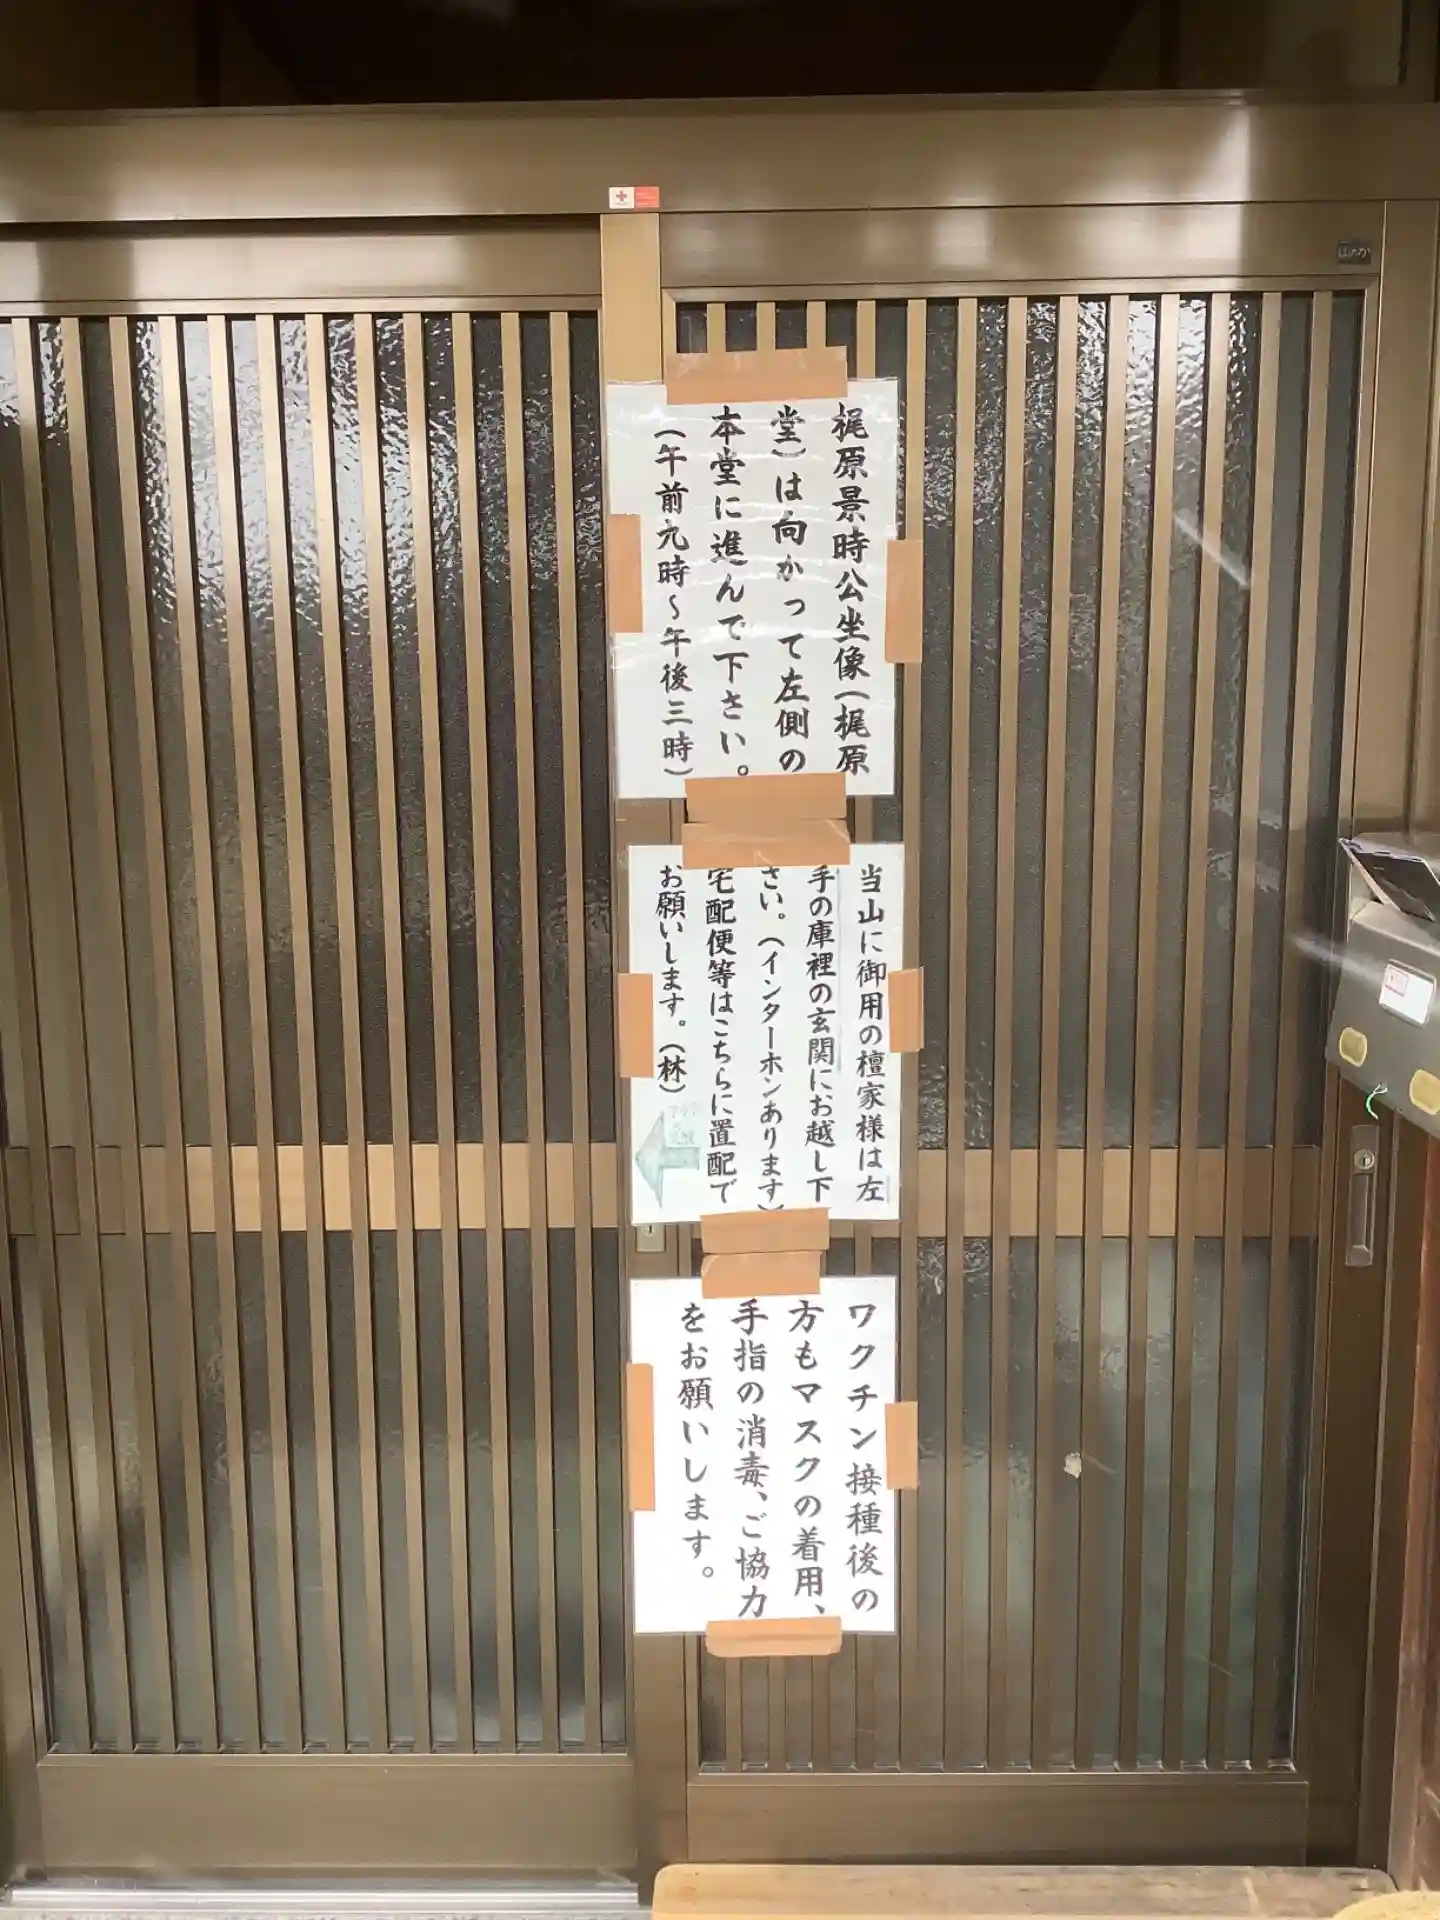 梶原景時公坐像(梶原
堂)は向かって左側の
本堂に進んで下さい。
(午前九時～午後三時)
当山に御用の檀家様は左
手の庫裡の玄関にお越し下
さい。(インターホンあります)
宅配便等はこちらに置配で
お願いします。(林)
ワクチン接種後の
方もマスクの着用、
手指の消毒、ご協力
をお願いします。